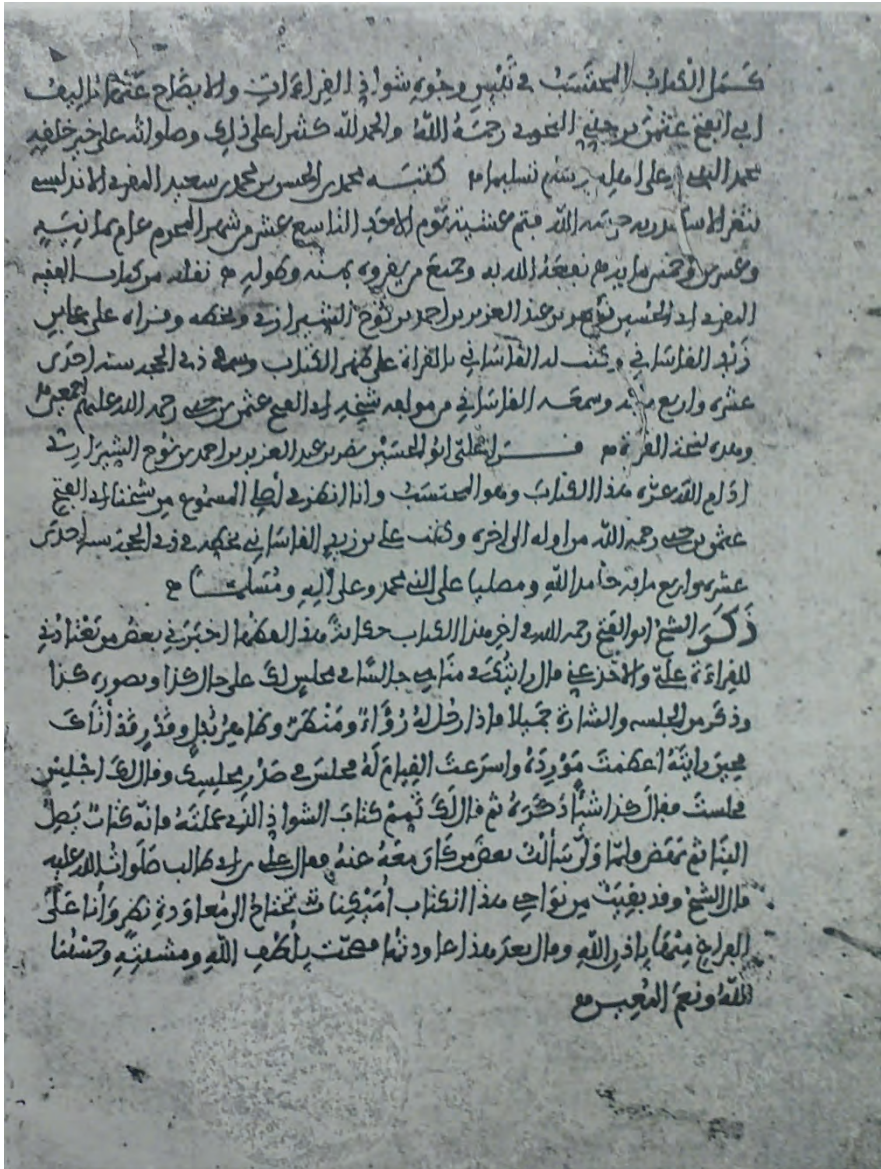 كَمَلَ الْكتابُ المحتَسَبُ في تَبْيِين وجُوهِ شواذِ القِراءاتِ والايضَاحِ عَنْهَا تاليفُ
ابي الفتح عثمٰنَ بن جِنِّي النحوي رحمَهُ اللهُ والحمد لله كثيرا على ذلك وصلواته على خير خلقهِ
محمد النبي وعلى اهله وسلم تسليما كتبه محمد بن الحسن بن محمد بن سعيد المقرئ الاندلسي
بثغر الاسكندرية حرسه الله فتم عشية يَوم الاحَدِ التاسع عشر من شهر المحرم عام ثمانيَةٍ
وعشرين وخمس ماية نفعَهُ الله به وجميعَ من يقروه بمنه وطوله نقله من كتاب الفقيه
المقرئ ابي الحسين نصر بن عبد العزيز بن احمد بن نُوح الشيرازي وبخطه وقراه على علي بن
زَيْد القاسَاني وكتب له القاسَاني بالقراة على ظهر الكتاب وسمع في ذي الحجة سنة احدَى
عشرة واربع ماية وسمعَه القاسَاني من مولفه شيخهِ ابي الفتح عثمن بن جني رحمة الله عليهم اجمعين
وهذه نسخة القراة قرا عَلَيَّ ابو الحسَيْن نصر بن عبد العزيز بن احمد بن نُوح الشيرازي
ادَام الله عزه هذا الكتابَ وهو المحتسَبُ وانا انظر في اصلي المسموع من شيخنا ابي الفتح
عثمن بن جني رحمه الله من اوله الى اخره وكتب علي بن زيدٍ القاسَاني بخطه في ذي الحجة سنة احدَى
عشرة واربع ماية حَامدا للهِ ومصليا على النبي محمد وعلى آلِهِ ومُسَلما
ذَكَرَ الشيخ ابو الفتح رحمه الله في اخر هذا الكتاب حكايةً هذا لفظُها اخبَرَني بعض من يَعْتادُني
للقِراءَة عليَّ والاخذِ عني قال رايتُكَ في مَنَامي جالسًا في مجلس لك على حال كذا وبصورة كذا
وذكر من الجلسة والشارة جَميلا فاذا رجُل لهُ رُوَاءٌ ومَنْظَرٌ وظاهِرُ نُبلٍ وقدْرٍ قَدْ أتَاكَ
فحينَ رايتَهُ اعظمتَ مَوْرِدَهُ واسرعتَ القِيامَ لَهُ فجلسَ في صَدْرِ مجلِسِك وقال لكَ اجْلِسْ
فجلستَ فقال كذا شيئًا ذَكَرَهُ ثم قال لكَ تَمِّمْ كتابَ الشواذِ الذي عملتَهُ فانّه كتابٌ يَصِلُ
الينَا ثم نهَض فلمّا وَلَّى سَألْتُ بعضَ من كَانَ معَهُ عنهُ فقال علي بن ابي طالب صَلَواتُ الله عليه
قال الشيخ وقد بقِيَتْ مِن نواحي هذا الكتاب أمَيْكِنَاتٌ تَحتاجُ الى مُعاوَدةِ نظرٍ وَأنا عَلَى
الفراغ مِنهَا بإذن اللهِ وقال بعدَ هذا عاودتُها فصَحَّت بِلُطفِ اللهِ ومشيئتِهِ وحَسْبُنا
اللهُ ونعمَ المُعِين